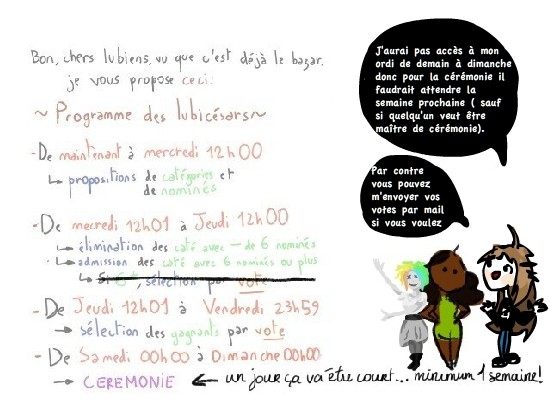 Bon, chers lubiens, vu que c'est déjà le bazar,
je vous propose ceci:
~ Programme des lubicésars ~
- De maintenant à mercredi 12h00
↳ propositions de catégories et
de nominés
- De mercredi 12h01 à Jeudi 12h00
↳ élimination des caté avec - de 6 nominés
↳ admission des caté avec 6 nominés ou plus
↳ Si 6+, sélection par vote
- De Jeudi 12h01 à Vendredi 23h59
→ sélection des gagnants par vote
- De Samedi 00h00 à Dimanche 00h00
→ CEREMONIE ← un jour ça va être court... minimum 1 semaine!
J'aurai pas accès à mon
ordi de demain à dimanche
donc pour la cérémonie il
faudrait attendre la
semaine prochaine ( sauf
si quelqu'un veut être
maître de cérémonie).
Par contre
vous pouvez
m'envoyer vos
votes par mail
si vous voulez